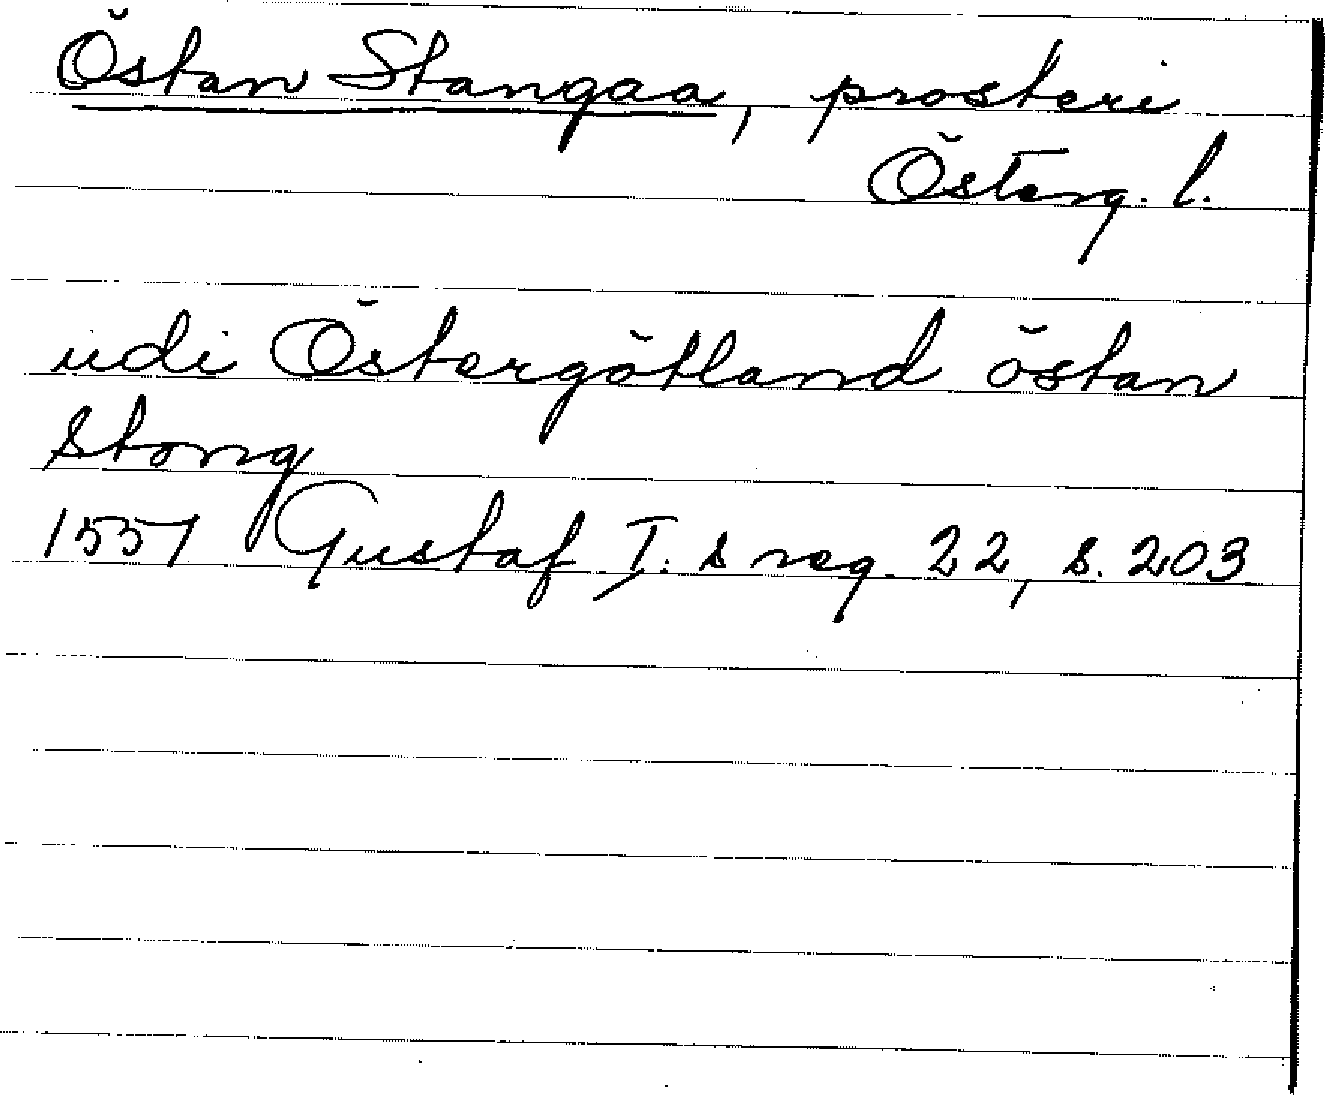 Östan Stangaa, prosteri
Österg. l.
udi Östergötland östan
Stong
1557 Gustaf I:s reg. 22, s. 203